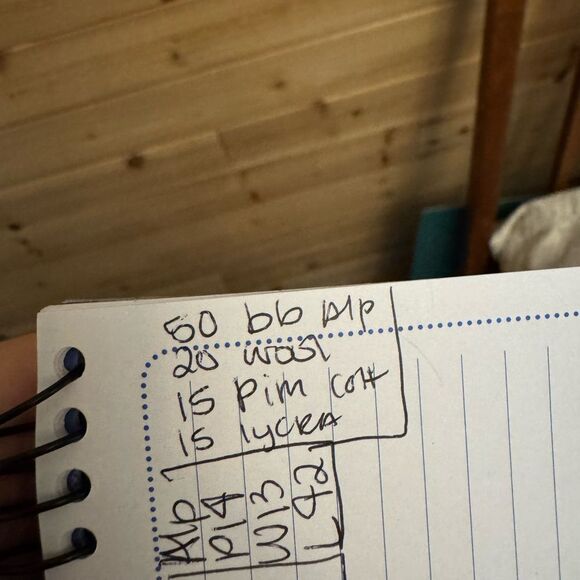 50 bb Alp
20 wool
15 Pim cott
15 lycra
Alp
P14
W13
L 42